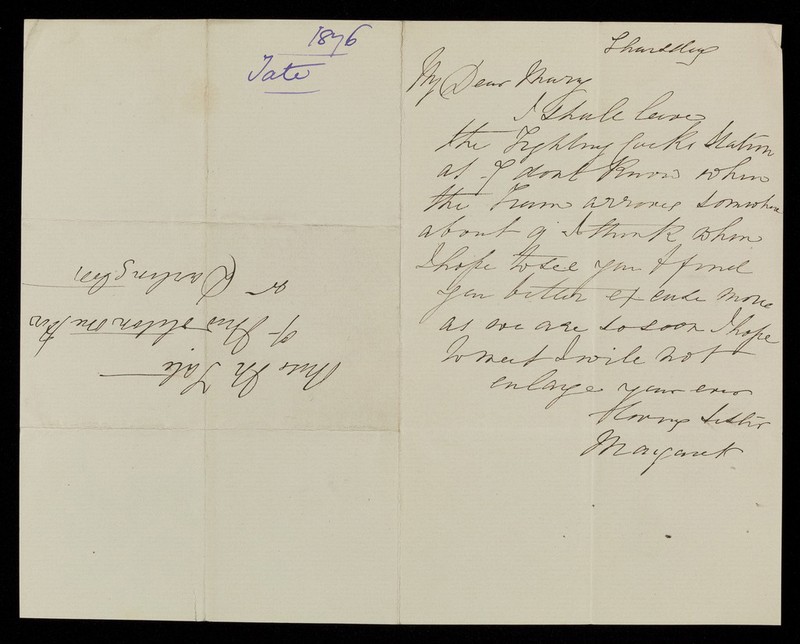 1876
Tate
Thursday
My Dear Mary
I shall leave
the Fighting Cocks Station
at I dont know when
the Train arrives somwhere
about 9 I think when
I hope to see you & find
you better excuse more
as we are so soon I hope
to meet I will not
enlarge your ever
loving sister
Margaret
Mrs M Tate
of Middleton One Row
nr Darlington